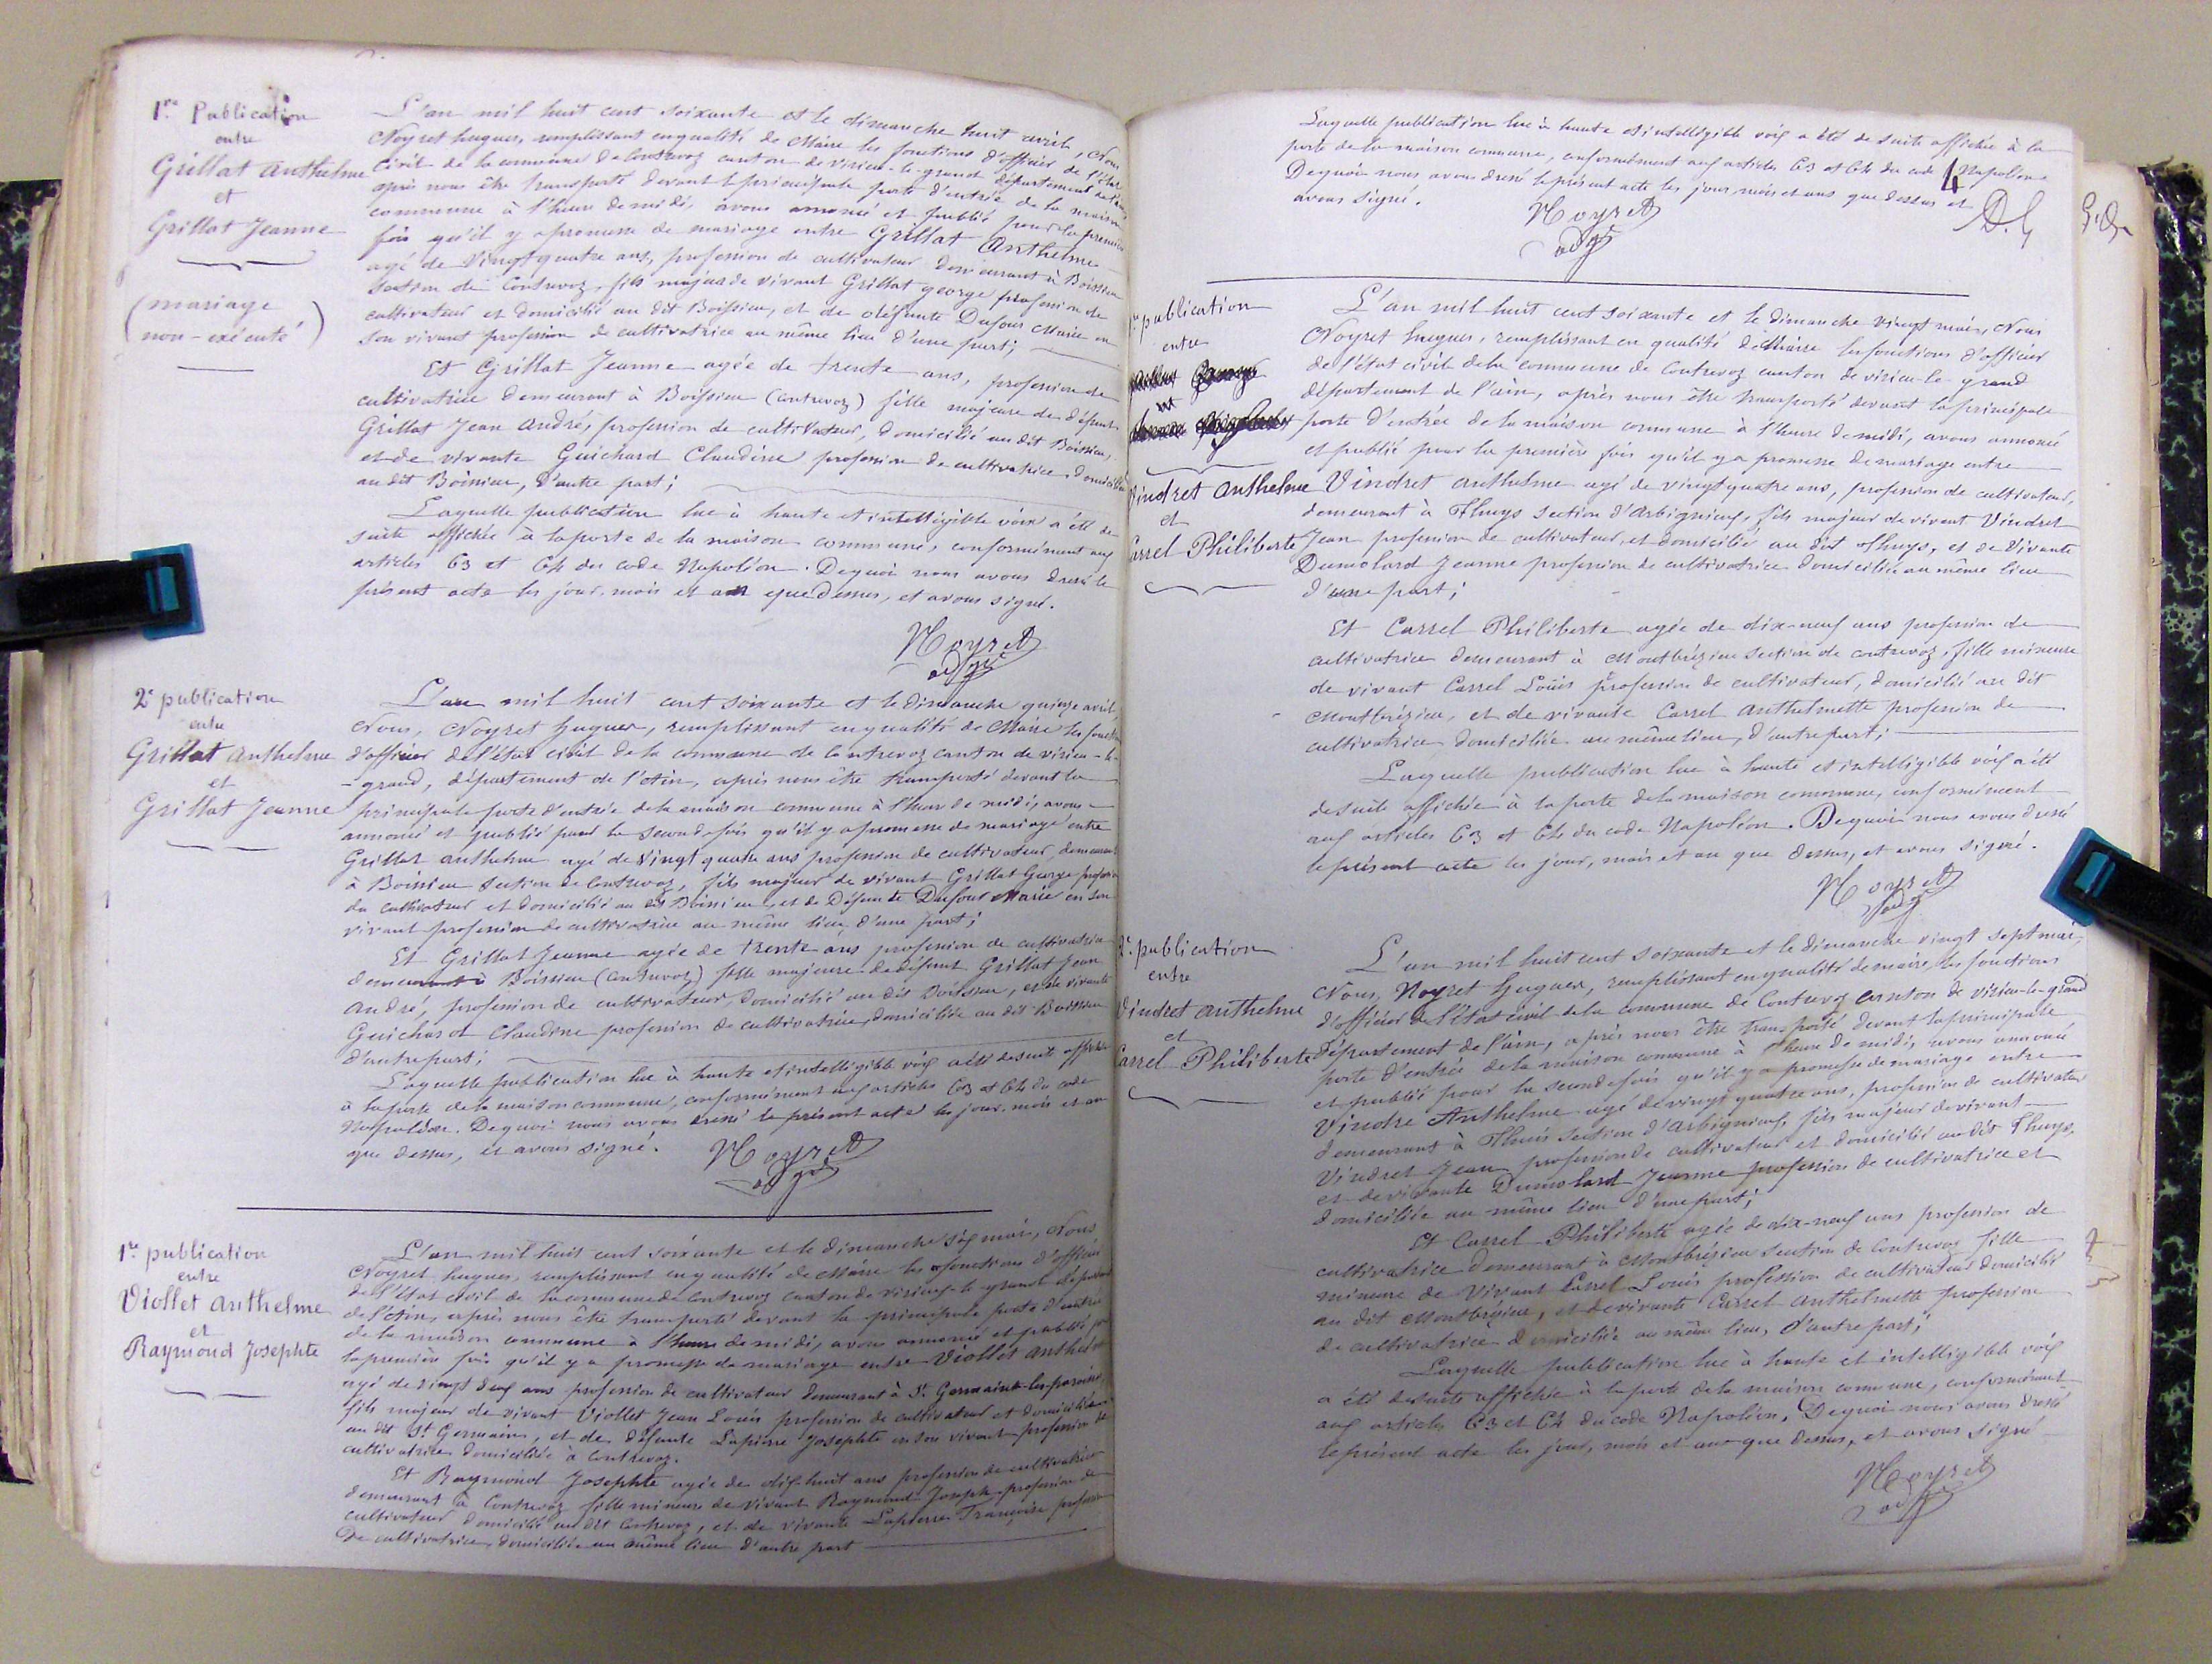 1re Publication
entre
Grillat Anthelme
et
Grillat Jeanne
(mariage
non-exécuté)
L'an mil huit cent soixante et le dimanche huit avril, Nous
Noyret hugues, remplissant en qualité de Maire les fonctions d'officier de l'état
Civil de la commune de Contrevoz canton de virieu-le-grand département de l'ain
après nous être transporté devant la principale porte d'entrée de la maison
commune à l'heure de midi, avons annoncé et publié pour la première
fois qu'il y a promesse de mariage entre Grillat Anthelme
agé de Vingt quatre ans, profession de cultivateur demeurant à Boissieu
Section de Contrevoz, fils majeur de vivant Grillat george profession de
cultivateur et domicilié au dit Boissieu, et de défunte Dufour Marie en
son vivant profession de cultivatrice au même lieu d'une part;
Et Grillat Jeanne agée de trente ans, profession de
cultivatrice demeurant à Boissieu (Contrevoz) fille majeure de défunt
Grillat Jean André, profession de cultivateur, domicilié au dit Boissieu,
et de vivante Guichard Claudine profession de cultivatrice, domiciliée
au dit Boissieu, d'autre part;
Laquelle publication lue à haute et intelligible voix a été de
suite affichée à la porte de la maison commune, conformément aux
articles 63 et 64 du code Napoléon. De quoi nous avons dressé le
présent acte les jour, mois et an que dessus, et avons signé.
Noyret
adjt
2e publication
entre
Grillat Anthelme
et
Grillat Jeanne
L'an mil huit cent soixante et le dimanche quinze avril,
Nous, Noyret Hugues, remplissant en qualité de Maire les fonctions
d'officier de l'état civil de la commune de Contrevoz canton de virieu-le-
-grand, département de l'Ain, après nous être transporté devant la
principale porte d'entrée de la maison commune à l'heure de midi, avons
annoncé et publié pour la seconde fois qu'il y a promesse de mariage entre
Grillat Anthelme agé de Vingt quatre ans profession de cultivateur, demeurant
à Boissieu Section de Contrevoz, fils majeur de vivant Grillat George profession
de cultivateur et domicilié au dit Boissieu, et de Défunte Dufour Marie en son
vivant profession de cultivatrice au même lieu, d'une part;
Et Grillat Jeanne agée de trente ans profession de cultivatrice
demeurant à Boissieu (Contrevoz) fille majeure de défunt Grillat Jean
André, profession de cultivateur, domicilié au dit Boissieu, et de vivante
Guichard Claudine profession de cultivatrice, domiciliée au dit Boissieu
d'autre part;
Laquelle publication lue à haute et intelligible voix a été de suite affichée
à la porte de la maison commune, conformément aux articles 63 et 64 du code
Napoléon. De quoi nous avons dressé le présent acte les jour, mois et an
que dessus, et avons signé.
Noyret
adjt
1re publication
entre
Viollet Anthelme
et
Raymond Josephte
L'an mil huit cent soixante et le dimanche six mai, Nous
Noyret hugues, remplissant en qualité de Maire les fonctions d'officier
de l'état civil de la commune de Contrevoz canton de virieu-le-grand département
de l'Ain, après nous être transporté devant la principale porte d'entrée
de la maison commune à l'heure de midi, avons annoncé et publié pour
la première fois qu'il y a promesse de mariage entre Viollet Anthelme
agé de vingt deux ans profession de cultivateur demeurant à St Germain-les-paroisses
fils majeur de vivant Viollet Jean Louis profession de cultivateur et domicilié
au dit St Germain, et de défunte Lapierre Josephte en son vivant profession de
cultivatrice domiciliée à Contrevoz.
Et Raymond Josephte agée de dix-huit ans profession de cultivatrice
demeurant à Contrevoz fille mineure de vivant Raymond Joseph profession de
cultivateur domicilié au dit Contrevoz, et de vivante Lapierre Françoise profession
De cultivatrice, domiciliée au même lieu d'autre part
Laquelle publication lue à haute et intelligible voix a été de suite affichée à la
porte de la maison commune, conformément aux articles 63 et 64 du code Napoléon
De quoi nous avons dressé le présent acte les jour, mois et ans que dessus et
avons signé.
4
Noyret
adjt
1re publication
entre
et
Vindret Anthelme
et
Carrel Philiberte
L'an mil huit cent soixante et le dimanche vingt mai, Nous
Noyret hugues, remplissant en qualité de Maire les fonctions d'officier
de l'état civil de la commune de Contrevoz canton de virieu-le-grand
département de l'ain, après nous être transporté devant la principale
porte d'entrée de la maison commune à l'heure de midi, avons annoncé
et publié pour la première fois qu'il y a promesse de mariage entre
Vindret Anthelme agé de vingt quatre ans, profession de cultivateur,
demeurant à Thuys section d'Arbignieux, fils majeur de vivant Vindret
Jean profession de cultivateur, et domicilié au dit Thuys, et de Vivante
Dumolard Jeanne profession de cultivatrice domiciliée au même lieu
d'une part;
Et Carrel Philiberte agée de dix-neuf ans profession de
cultivatrice demeurant à Montbrézieu section de contrevoz, fille mineure
de vivant Carrel Louis profession de cultivateur, domicilié au dit
Montbrézieu, et de vivante Carrel Anthelmette profession de
cultivatrice domiciliée au même lieu, d'autre part;
Laquelle publication lue à haute et intelligible voix a été
de suite affichée à la porte de la maison commune, conformément
aux articles 63 et 64 du code Napoléon. De quoi nous avons dressé
le présent acte les jour, mois et an que dessus, et avons signé.
Noyret
adjt
2e publication
entre
Vindret Anthelme
et
Carrel Philiberte
L'an mil huit cent soixante et le dimanche vingt sept mai,
Nous, Noyret Hugues, remplissant en qualité de maire, les fonctions
d'officier de l'état civil de la commune de Contrevoz canton de virieu-le-grand
Département de l'ain, après nous être transporté devant la principale
porte d'entrée de la maison commune à l'heure de midi, avons annoncé
et publié pour la seconde fois qu'il y a promesse de mariage entre
Vindre Anthelme agé de vingt quatre ans, profession de cultivateur
demeurant à Thuis section d'Arbignieux, fils majeur de vivant
Vindret Jean profession de cultivateur et domicilié au dit Thuys,
et de vivante Dumolard Jeanne profession de cultivatrice et
domiciliée au même lieu d'une part;
Et Carrel Philiberte agée de dix-neuf ans profession de
cultivatrice demeurant à Montbrézieu section de Contrevoz fille
mineure de Vivant Carrel Louis profession de cultivateur domicilié
au dit Montbrézieu, et de vivante Carrel Anthelmette profession
de cultivatrice domiciliée au même lieu, d'autre part;
Laquelle publication lue à haute et intelligible voix
a été de suite affichée à la porte de la maison commune, conformément
aux articles 63 et 64 du code Napoléon. De quoi nous avons dressé
le présent acte les jour, mois et an que dessus, et avons signé
Noyret
adjt